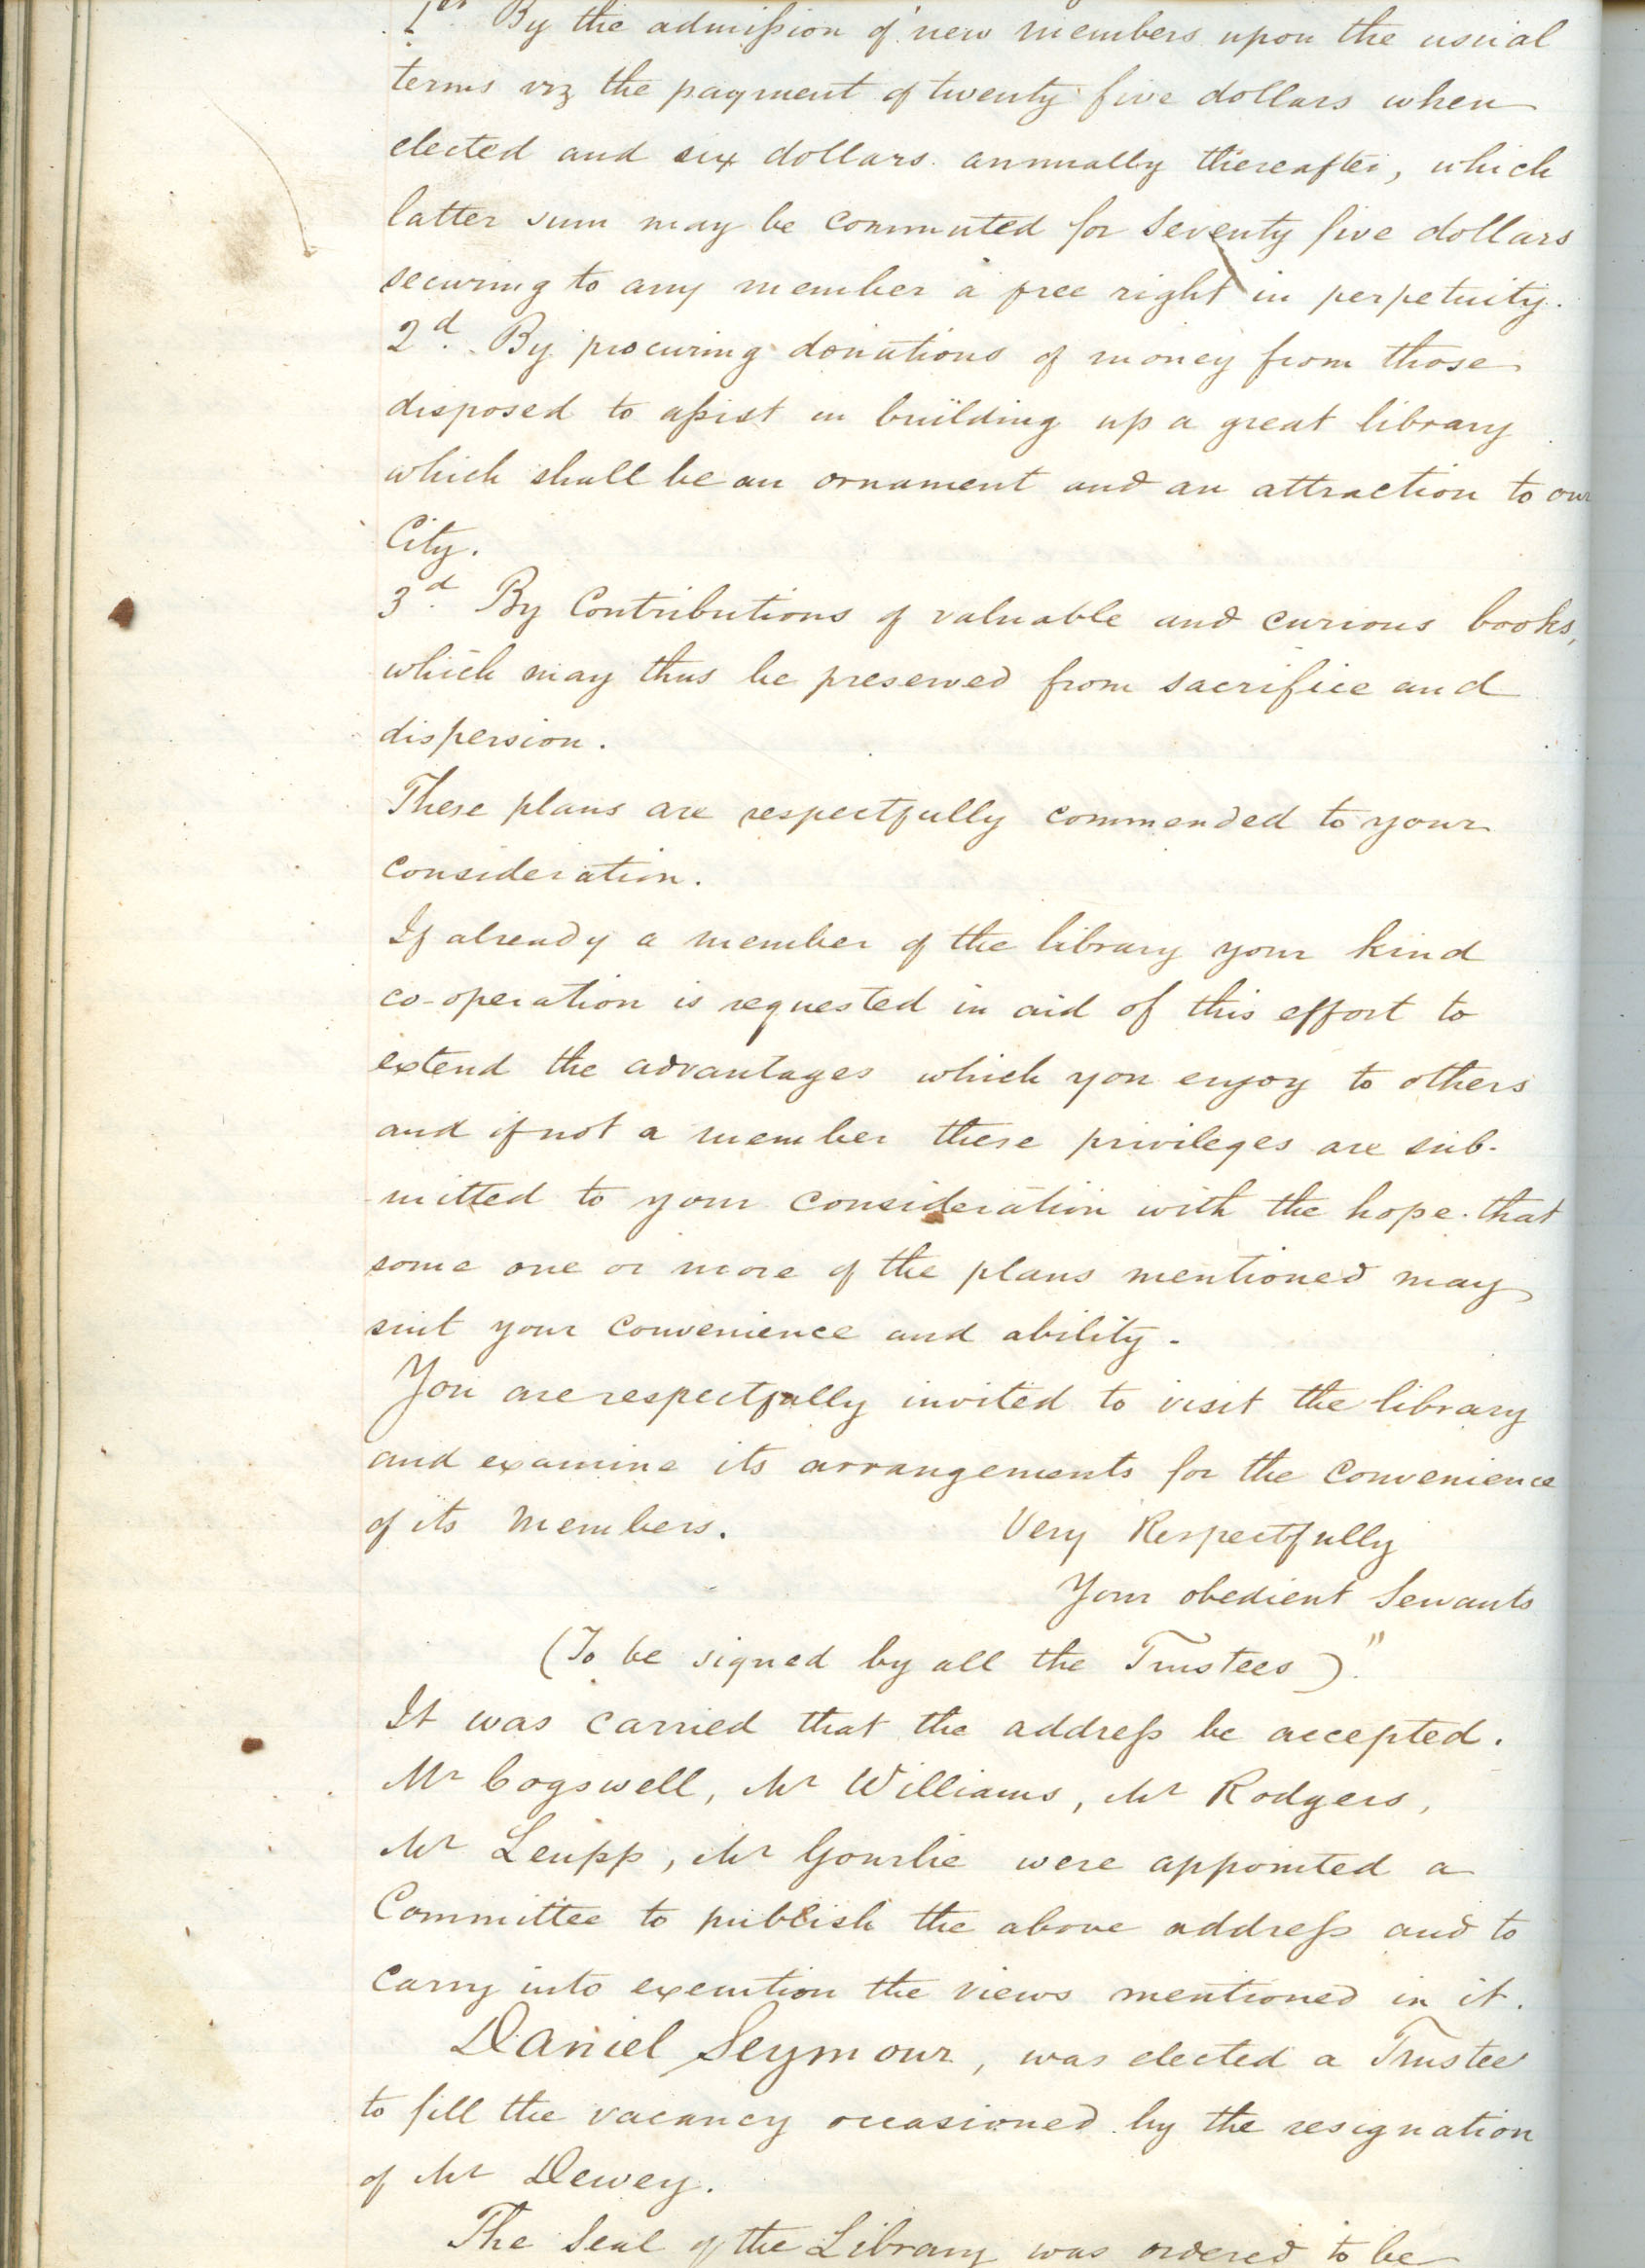 1st By the admission of new members upon the usual
terms viz the payment of twenty five dollars when
elected and six dollars annually thereafter, which
latter sum may be commuted for Seventy five dollars
securing to any member a free right in perpetuity.
2d. By procuring donations of money from those
disposed to assist in building up a great library
which shall be an ornament and an attraction to our
City.
3d. By Contributions of valuable and curious books,
which may thus be preserved from sacrifice and
dispersion.
These plans are respectfully commended to your
consideration.
If already a member of the library your kind
co-operation is requested in aid of this effort to
extend the advantages which you enjoy to others
and if not a member these privileges are sub-
-mitted to your consideration with the hope that
some one or more of the plans mentioned may
suit your convenience and ability.
You are respectfully invited to visit the library
and examine its arrangements for the convenience
of its Members. Very Respectfully
Your obedient Servants
(To be signed by all the Trustees)."
It was carried that the address be accepted.
Mr Cogswell, Mr Williams, Mr Rodgers,
Mr Leupp, Mr Gourlie were appointed a
Committee to publish the above address and to
carry into execution the views mentioned in it.
Daniel Seymour, was elected a Trustee
to fill the vacancy occasioned by the resignation
of Mr Dewey.
The Seal of the Library was ordered to be